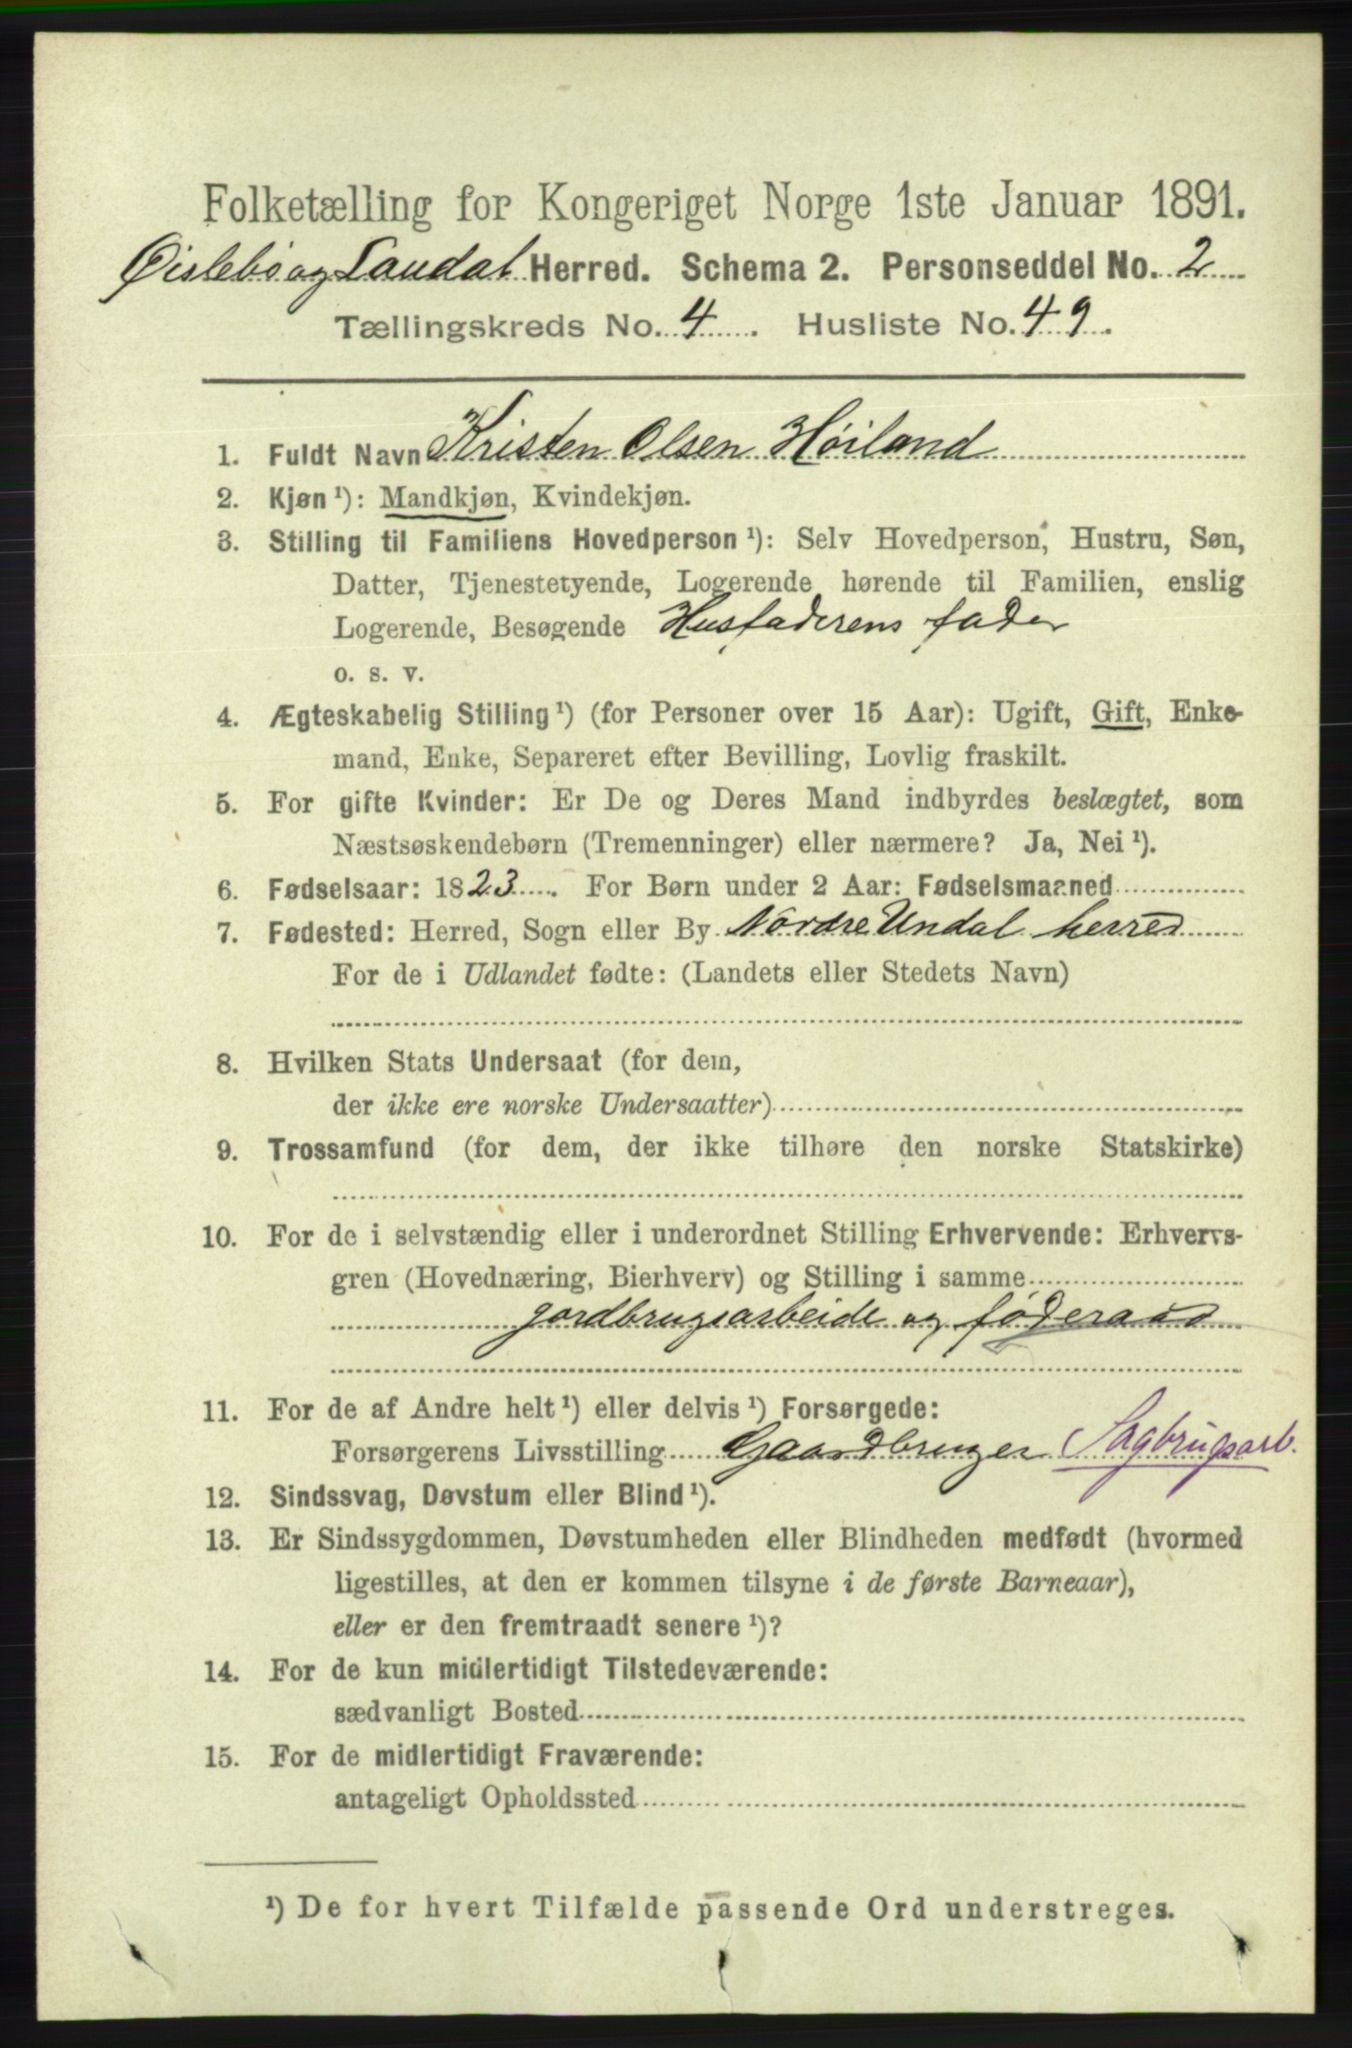 Folketælling for Kongeriget Norge 1ste Januar 1891.
Øislebø og Laudal Herred. Schema 2. Personseddel No. 2
Tællingskreds No. 4. Husliste No. 49.
1. Fuldt Navn Kristen Olsen Höiland
2. Kjøn ¹): Mandkjøn, Kvindekjøn.
3. Stilling til Familiens Hovedperson ¹): Selv Hovedperson, Hustru, Søn,
Datter, Tjenestetyende, Logerende hørende til Familien, enslig
Logerende, Besøgende Husfaderens fader
o. s. v.
4. Ægteskabelig Stilling ¹) (for Personer over 15 Aar): Ugift, Gift, Enke-
mand, Enke, Separeret efter Bevilling, Lovlig fraskilt.
5. For gifte Kvinder: Er De og Deres Mand indbyrdes beslægtet, som
Næstsøskendebørn (Tremenninger) eller nærmere? Ja, Nei ¹).
6. Fødselsaar: 1823. For Børn under 2 Aar: Fødselsmaaned
7. Fødested: Herred, Sogn eller By Nordre Undal herred
For de i Udlandet fødte: (Landets eller Stedets Navn)
8. Hvilken Stats Undersaat (for dem,
der ikke ere norske Undersaatter)
9. Trossamfund (for dem, der ikke tilhøre den norske Statskirke)
10. For de i selvstændig eller i underordnet Stilling Erhvervende: Erhvervs-
gren (Hovednæring, Bierhverv) og Stilling i samme
gordbrugsarbeide og føderaad
11. For de af Andre helt ¹) eller delvis ¹) Forsørgede:
Forsørgerens Livsstilling Gaardbruger Sagbrugsarb.
12. Sindssvag, Døvstum eller Blind ¹).
13. Er Sindssygdommen, Døvstumheden eller Blindheden medfødt (hvormed
ligestilles, at den er kommen tilsyne i de første Barneaar),
eller er den fremtraadt senere ¹)?
14. For de kun midlertidigt Tilstedeværende:
sædvanligt Bosted
15. For de midlertidigt Fraværende:
antageligt Opholdssted
¹) De for hvert Tilfælde passende Ord understreges.